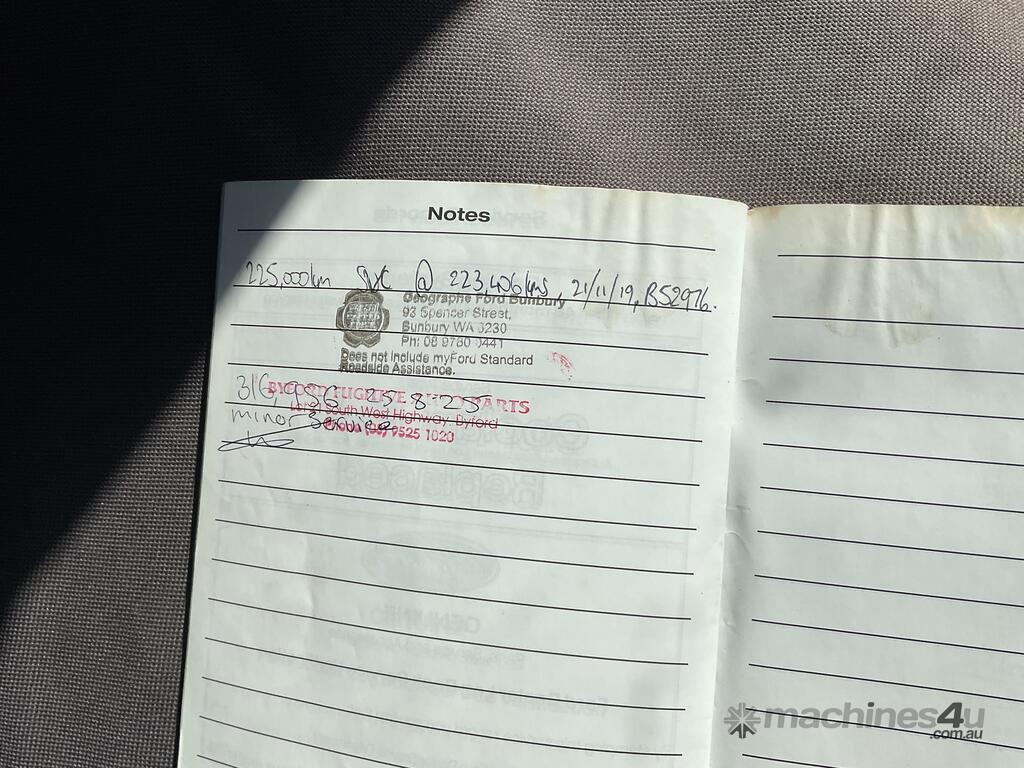 Notes
225,000km svc @ 223,406kms, 21/11/19, B52976.
Geographe Ford Bunbury
93 Spencer Street,
Bunbury WA 6230
Ph: 08 9780 0441
Does not include myFord Standard
Roadside Assistance.
BYFORD FUGITIVE AUTO PARTS
316 956 25-8-25
South West Highway, Byford
minor Service
9525 1020
Replaced
GENUINE
machines4u
.com.au